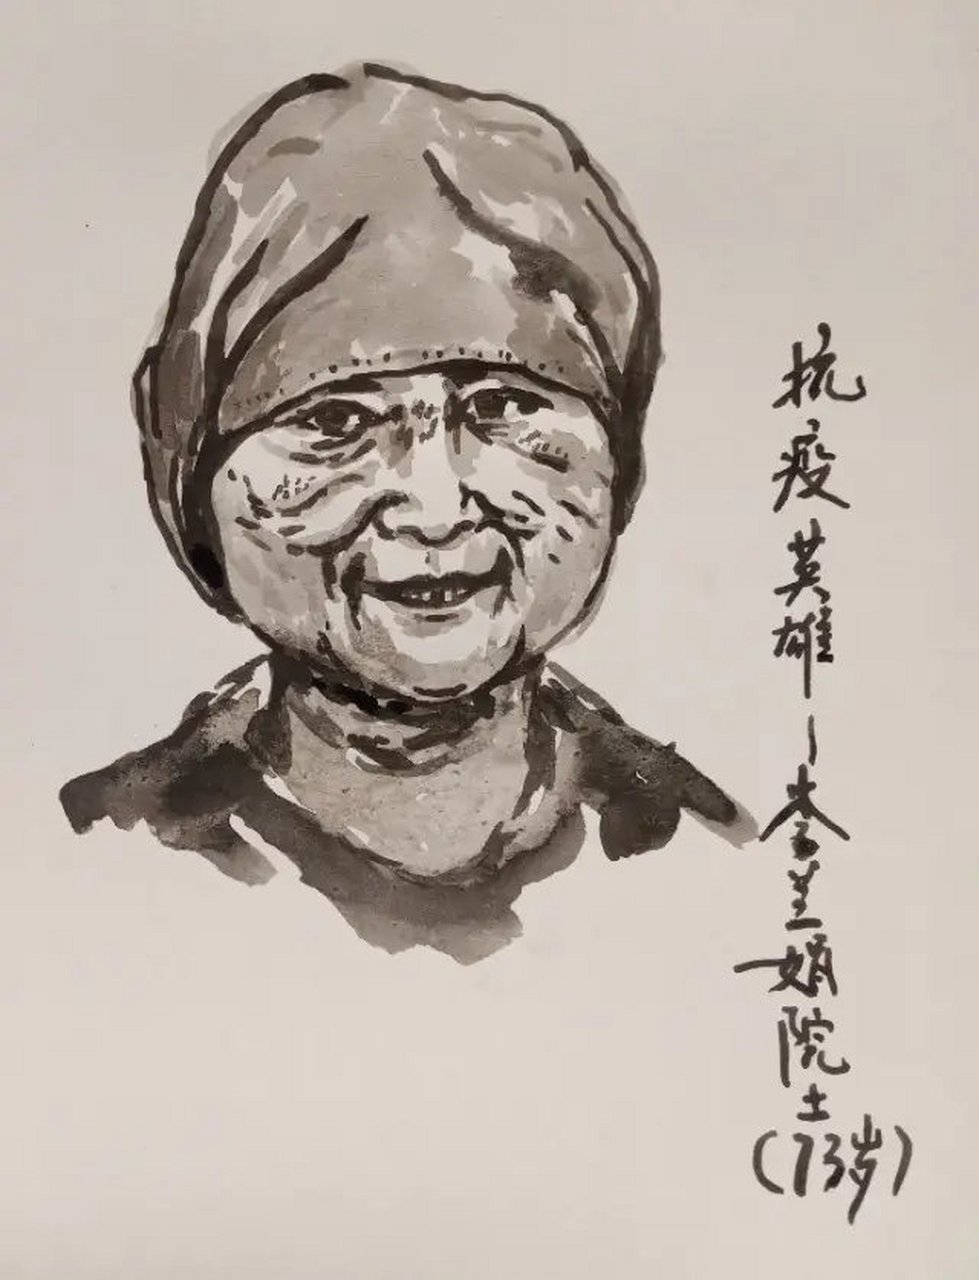 抗疫英雄——李兰娟院士(73岁)